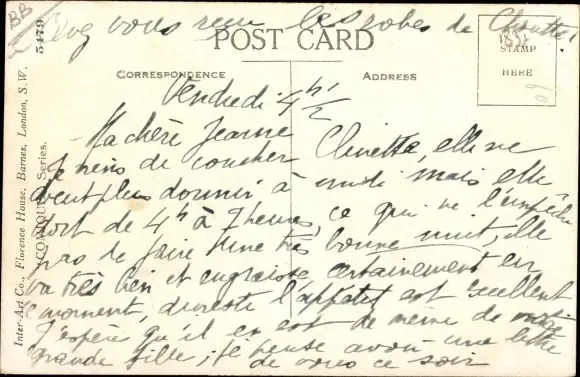 BB
5479
Avez vous reçu les robes de Clinette
POST CARD
CORRESPONDENCE
ADDRESS
STAMP
HERE
Inter-Art Co., Florence House, Barnes, London, S.W.
"COMIQUE" Series.
Vendredi 4h 1/2
Ma chère Jeanne
Je viens de coucher Clinette, elle ne
veut plus dormir à midi mais elle
dort de 4h à 7 heures, ce qui ne l'empêche
pas de faire une très bonne nuit, elle
va très bien et engraisse certainement en
ce moment, du reste l'appétit est excellent
J'espère qu'il en est de même de
grande fille ; je pense avoir une lettre
de vous ce soir